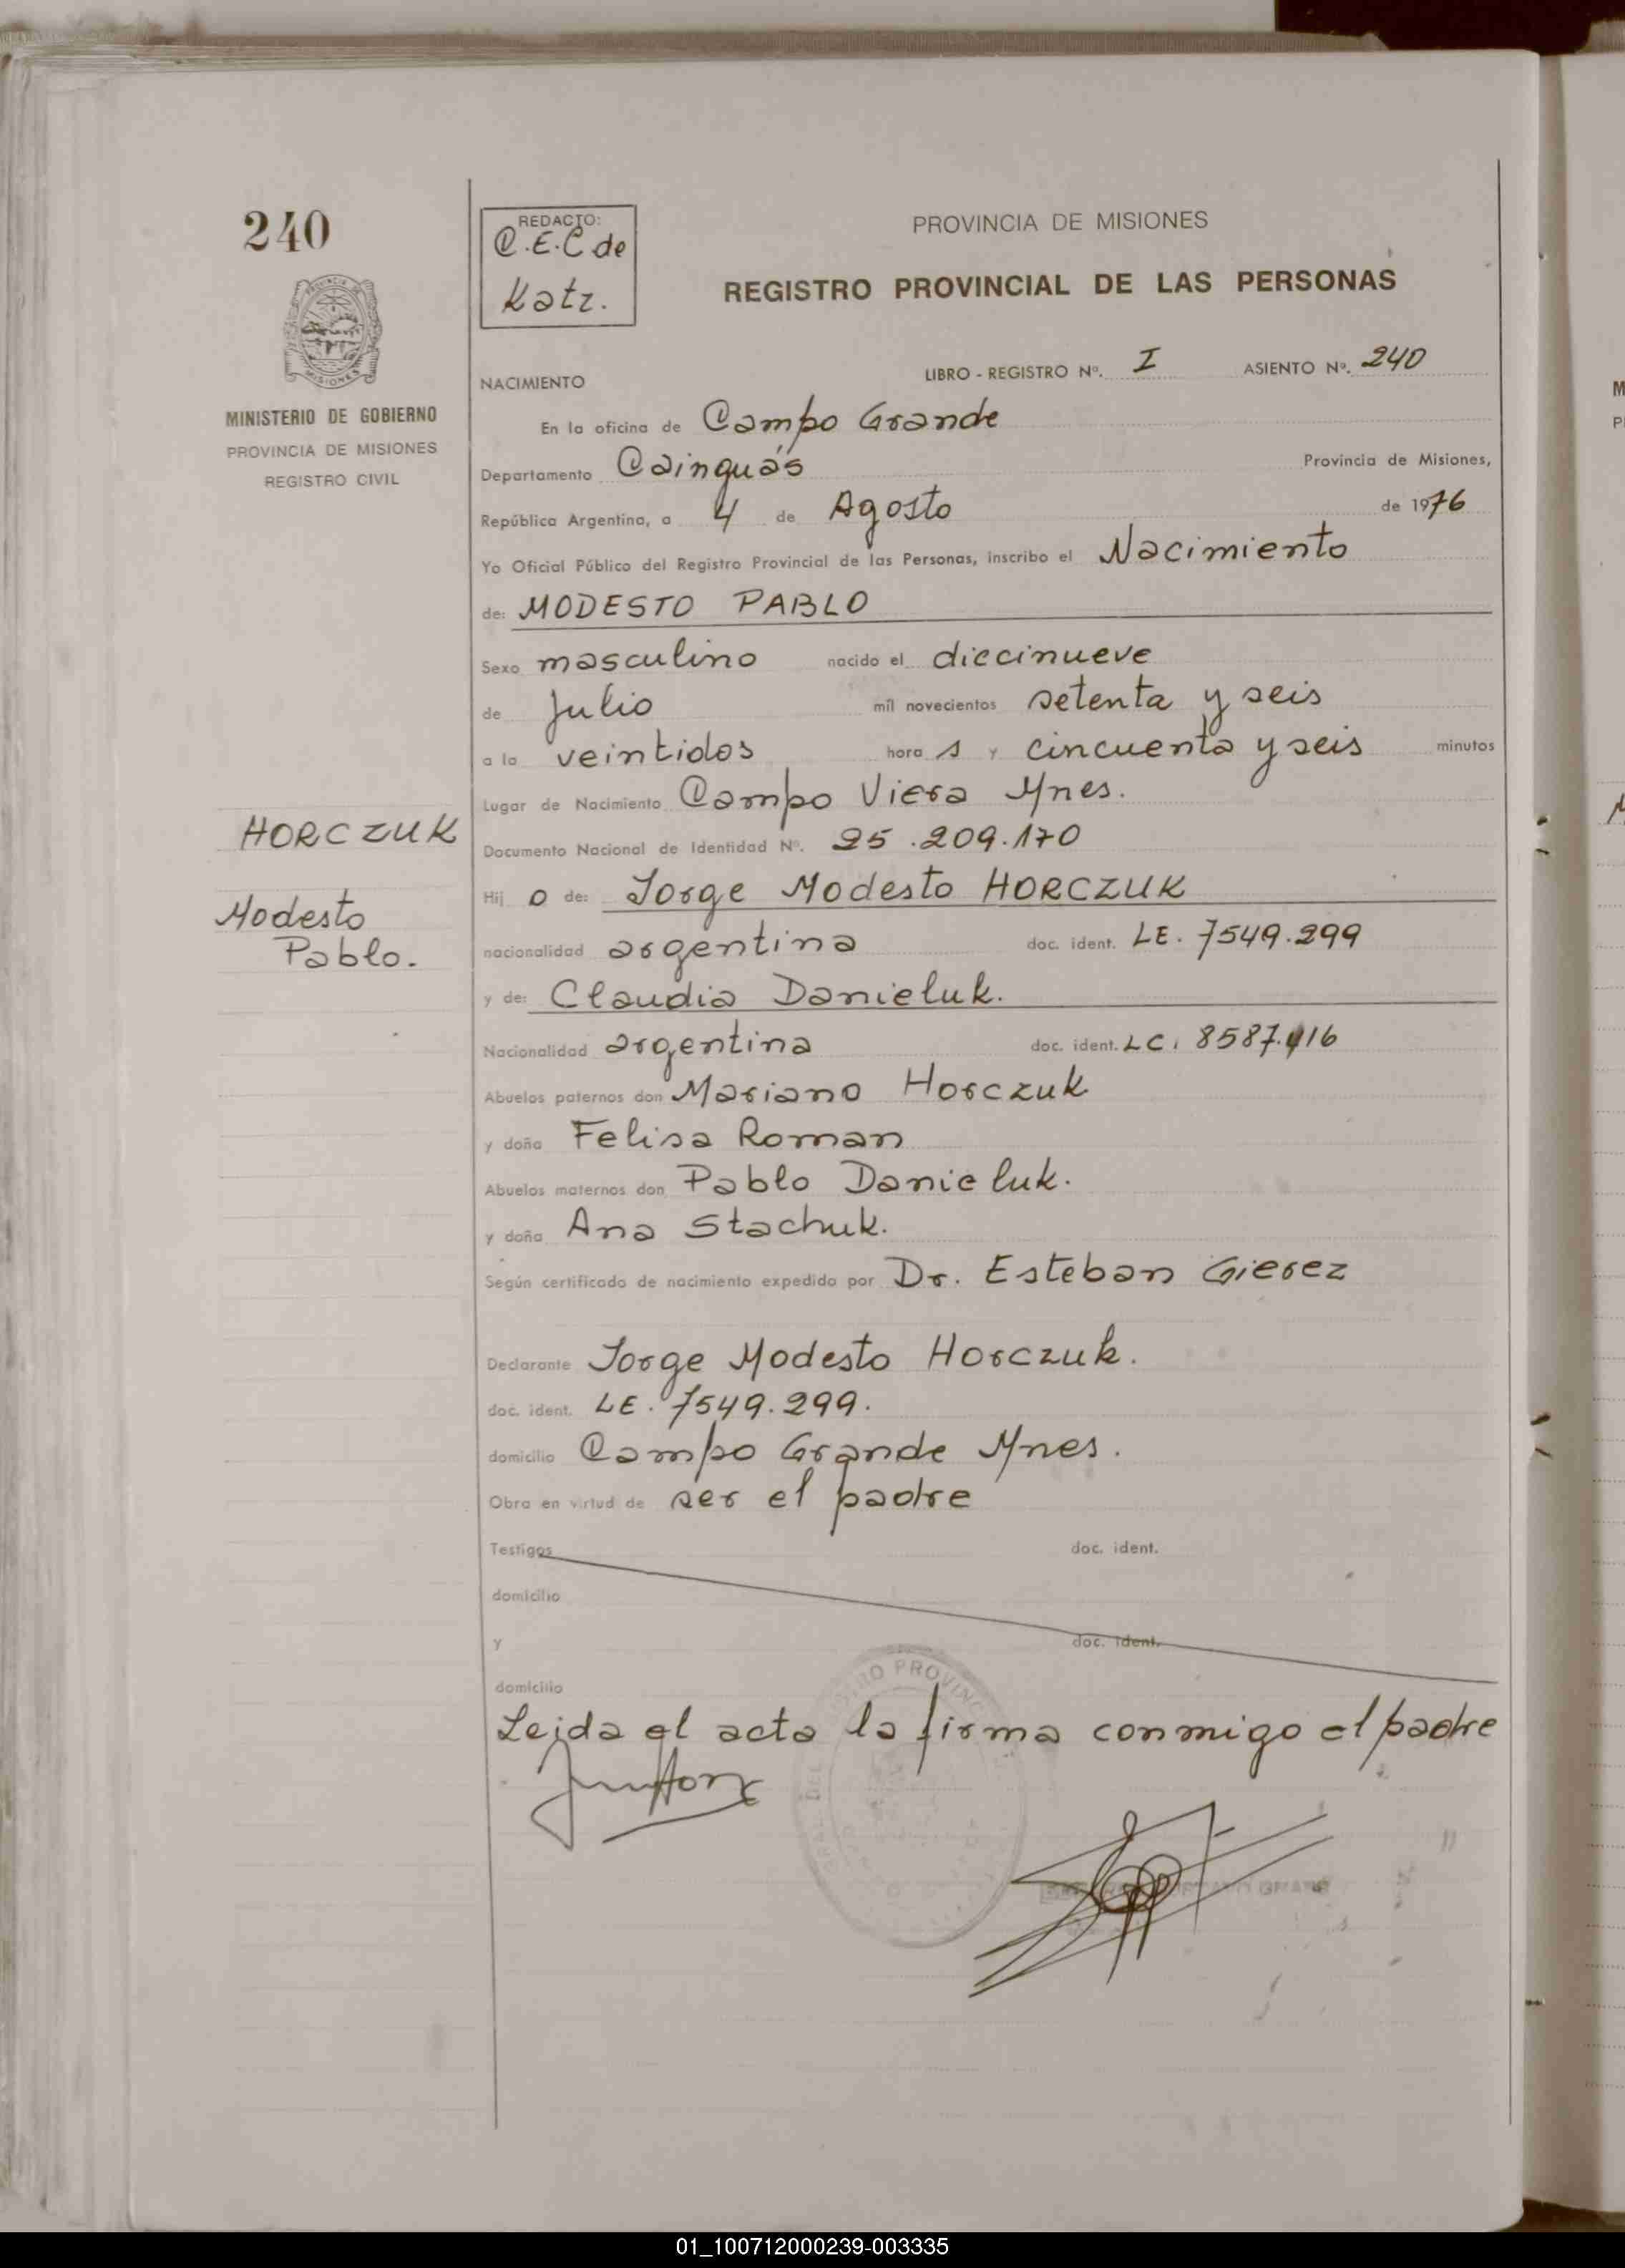 240
MINISTERIO DE GOBIERNO
PROVINCIA DE MISIONES
REGISTRO CIVIL
HORCZUK
Modesto
Pablo.
REDACTO:
C.E.C de
Katz.
PROVINCIA DE MISIONES
REGISTRO PROVINCIAL DE LAS PERSONAS
NACIMIENTO LIBRO - REGISTRO Nº. I ASIENTO Nº. 240
En la oficina de Campo Grande
Departamento Cainguás Provincia de Misiones,
República Argentina, a 4 de Agosto de 1976
Yo Oficial Público del Registro Provincial de las Personas, inscribo el Nacimiento
de: MODESTO PABLO
Sexo masculino nacido el diecinueve
de Julio mil novecientos setenta y seis
a la veintidos hora s y cincuenta y seis minutos
Lugar de Nacimiento Campo Viera Mnes.
Documento Nacional de Identidad Nº. 25.209.170
Hij o de: Jorge Modesto HORCZUK
nacionalidad argentina doc. ident. LE. 7549.299
y de: Claudia Danieluk.
Nacionalidad argentina doc. ident. LC. 8587.416
Abuelos paternos don Mariano Horczuk
y doña Felisa Roman
Abuelos maternos don Pablo Danieluk.
y doña Ana Stachuk.
Según certificado de nacimiento expedido por Dr. Esteban Gierez
Declarante Jorge Modesto Horczuk.
doc. ident. LE. 7549.299.
domicilio Campo Grande Mnes.
Obra en virtud de ser el padre
Testigos doc. ident.
domicilio
y doc. ident.
domicilio
Leida el acta la firma conmigo el padre
01_100712000239-003335